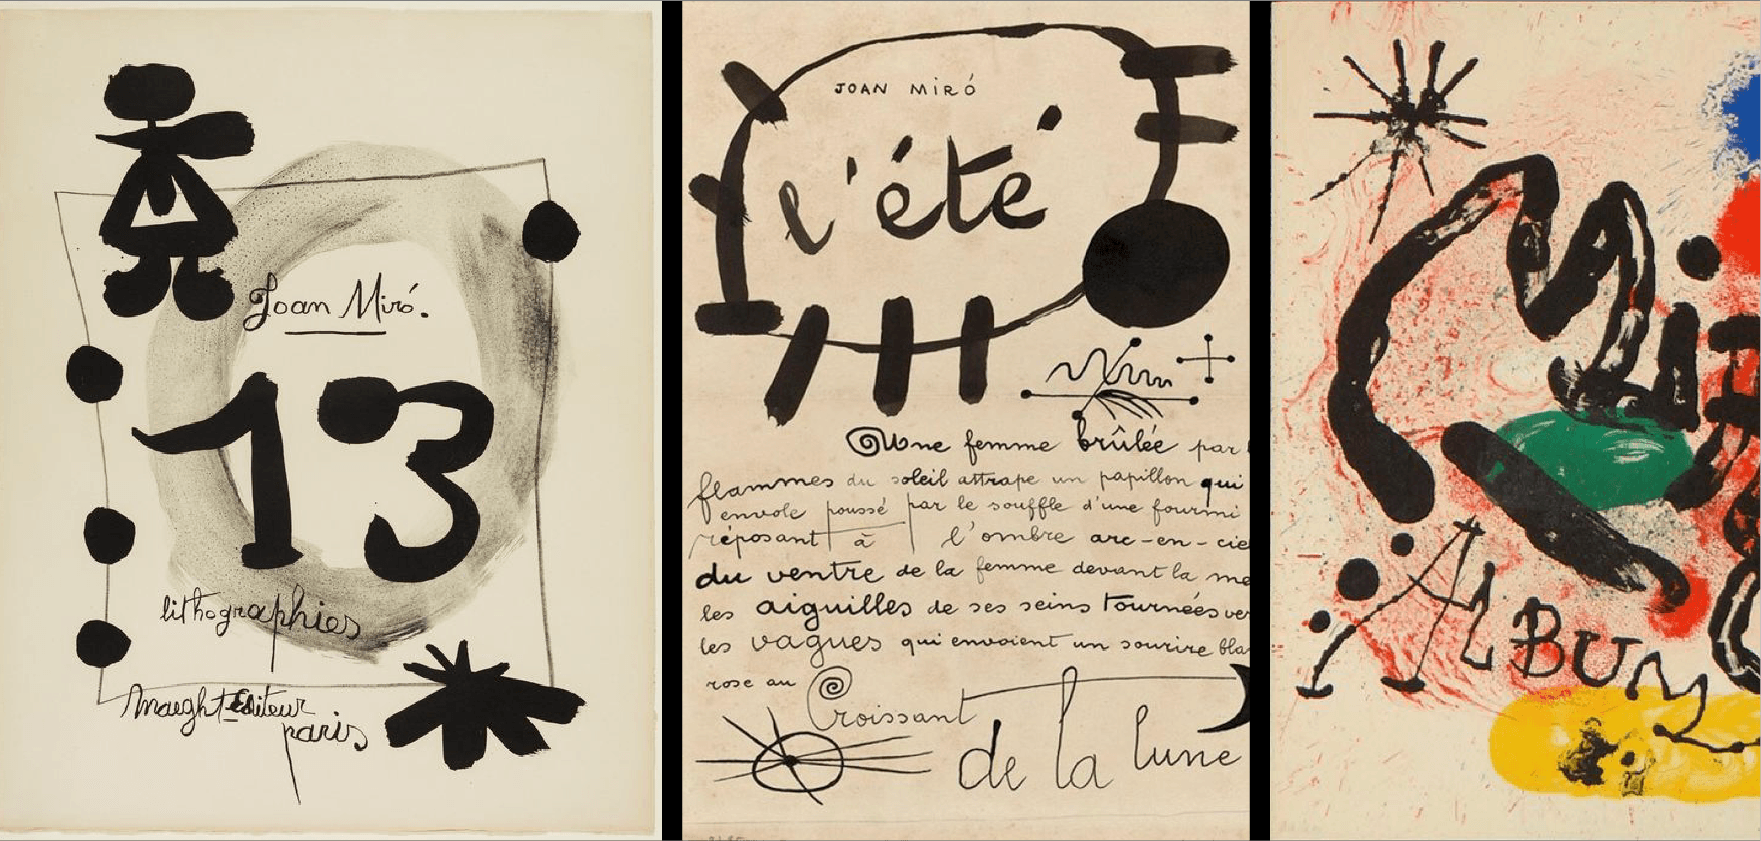 Joan Miró.
13
lithographies
Maeght Editeur
paris
JOAN MIRÓ
l'été
Une femme brûlée par
flammes du soleil attrape un papillon qui
envole poussé par le souffle d'une fourmi
réposant à l'ombre arc-en-cie
du ventre de la femme devant la me
les aiguilles de ses seins tournées ver
les vagues qui envoient un sourire bla
rose au Croissant
de la lune
Miró
ALBUM